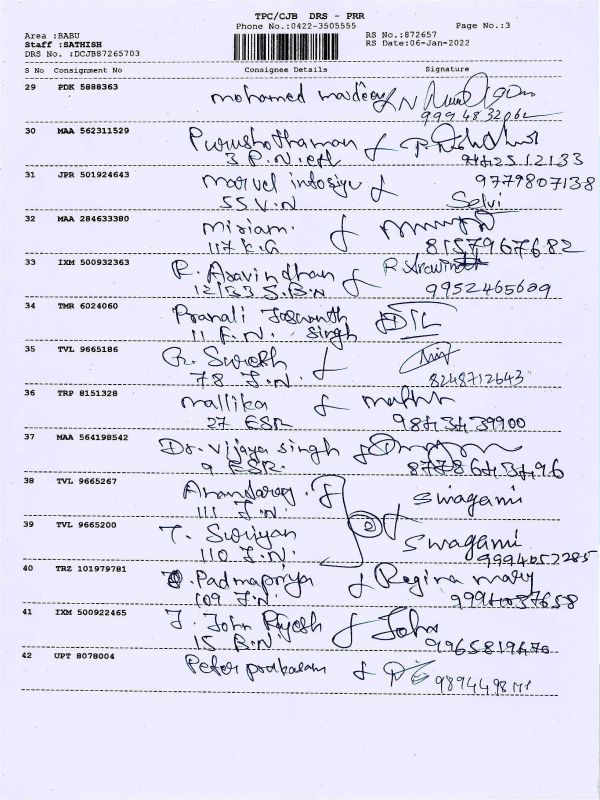 TPC/CJB DRS - PRR
Phone No.:0422-3505555 Page No.:3
Area :BABU RS No.:872657
Staff :SATHISH RS Date:06-Jan-2022
DRS No. :DCJB87265703
S No Consignment No Consignee Details Signature
29 PDK 5888363 mohamed
30 MAA 562311529 Purushothaman
3 P.N.
31 JPR 501924643 marvel 9779807138
55 V.N Selvi
32 MAA 284633380 miriam.
117 K.G 8157967682
33 IXM 500932363 R. Aravindhan R. Aravind
12/133 S.B.N 9952465609
34 TMR 6024060 Pranali
11 F.N. Singh
35 TVL 9665186 R. Suresh
78 J.N. 8248712643
36 TRP 8151328 mallika
27 ESR 9843439900
37 MAA 564198542 Dr. Vijaya singh
9 ESR. 8778643496
38 TVL 9665267 swagami
111 J.N.
39 TVL 9665200 T. Suriyan swagami
110 J.N. 9994057285
40 TRZ 101979781 Padmapriya Regina mary
109 J.N
41 IXM 500922465 J. John Rajesh John
15 B.N 9965819470
42 UPT 8078004 Peter prakasam